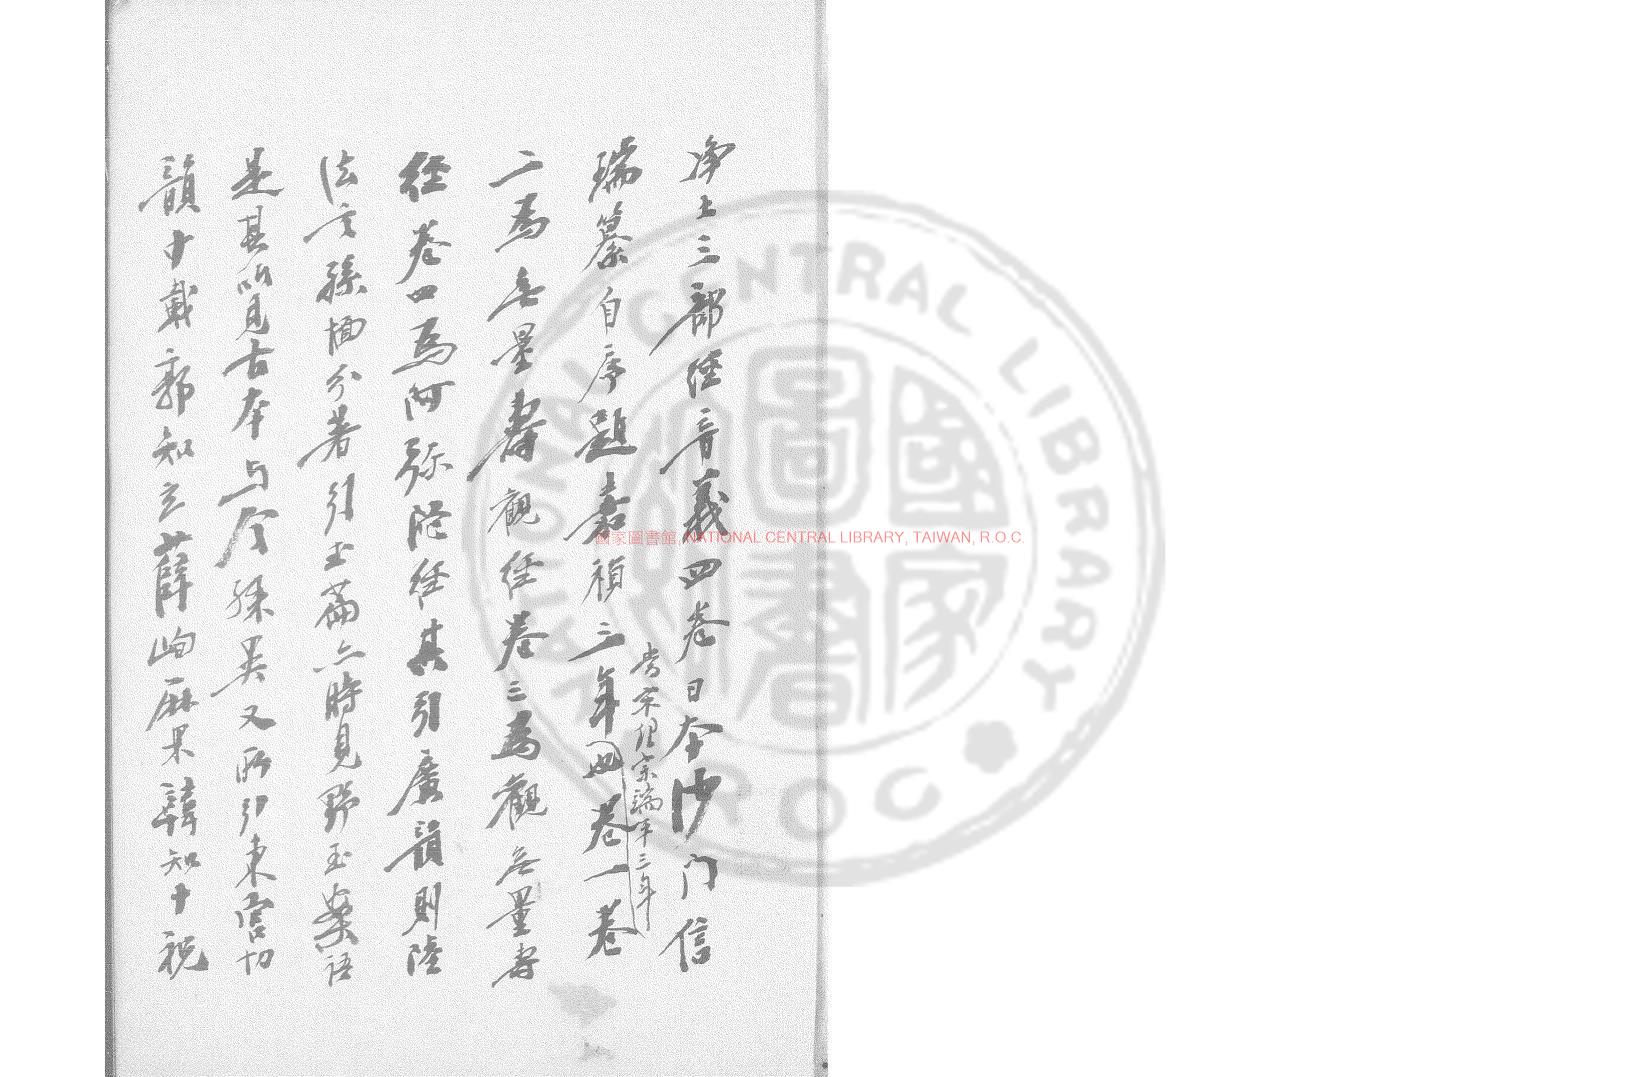 淨土三部經音義四卷日本沙门信
瑞纂自序題嘉禎三年
當宋理宗端平三年
四卷一卷
二為无量壽觀經卷三為觀无量壽
經卷四為阿弥陀經其引廣韻則陸
法言孫愐分著引玉篇亦時見野王案語
是其所見古本与今殊異又所引東宮切
韻中載郭知玄薛峋麻果韓知十祝
國家圖書館, NATIONAL CENTRAL LIBRARY, TAIWAN, R.O.C.
NATIONAL CENTRAL LIBRARY
TAIWAN R O C
國家圖書